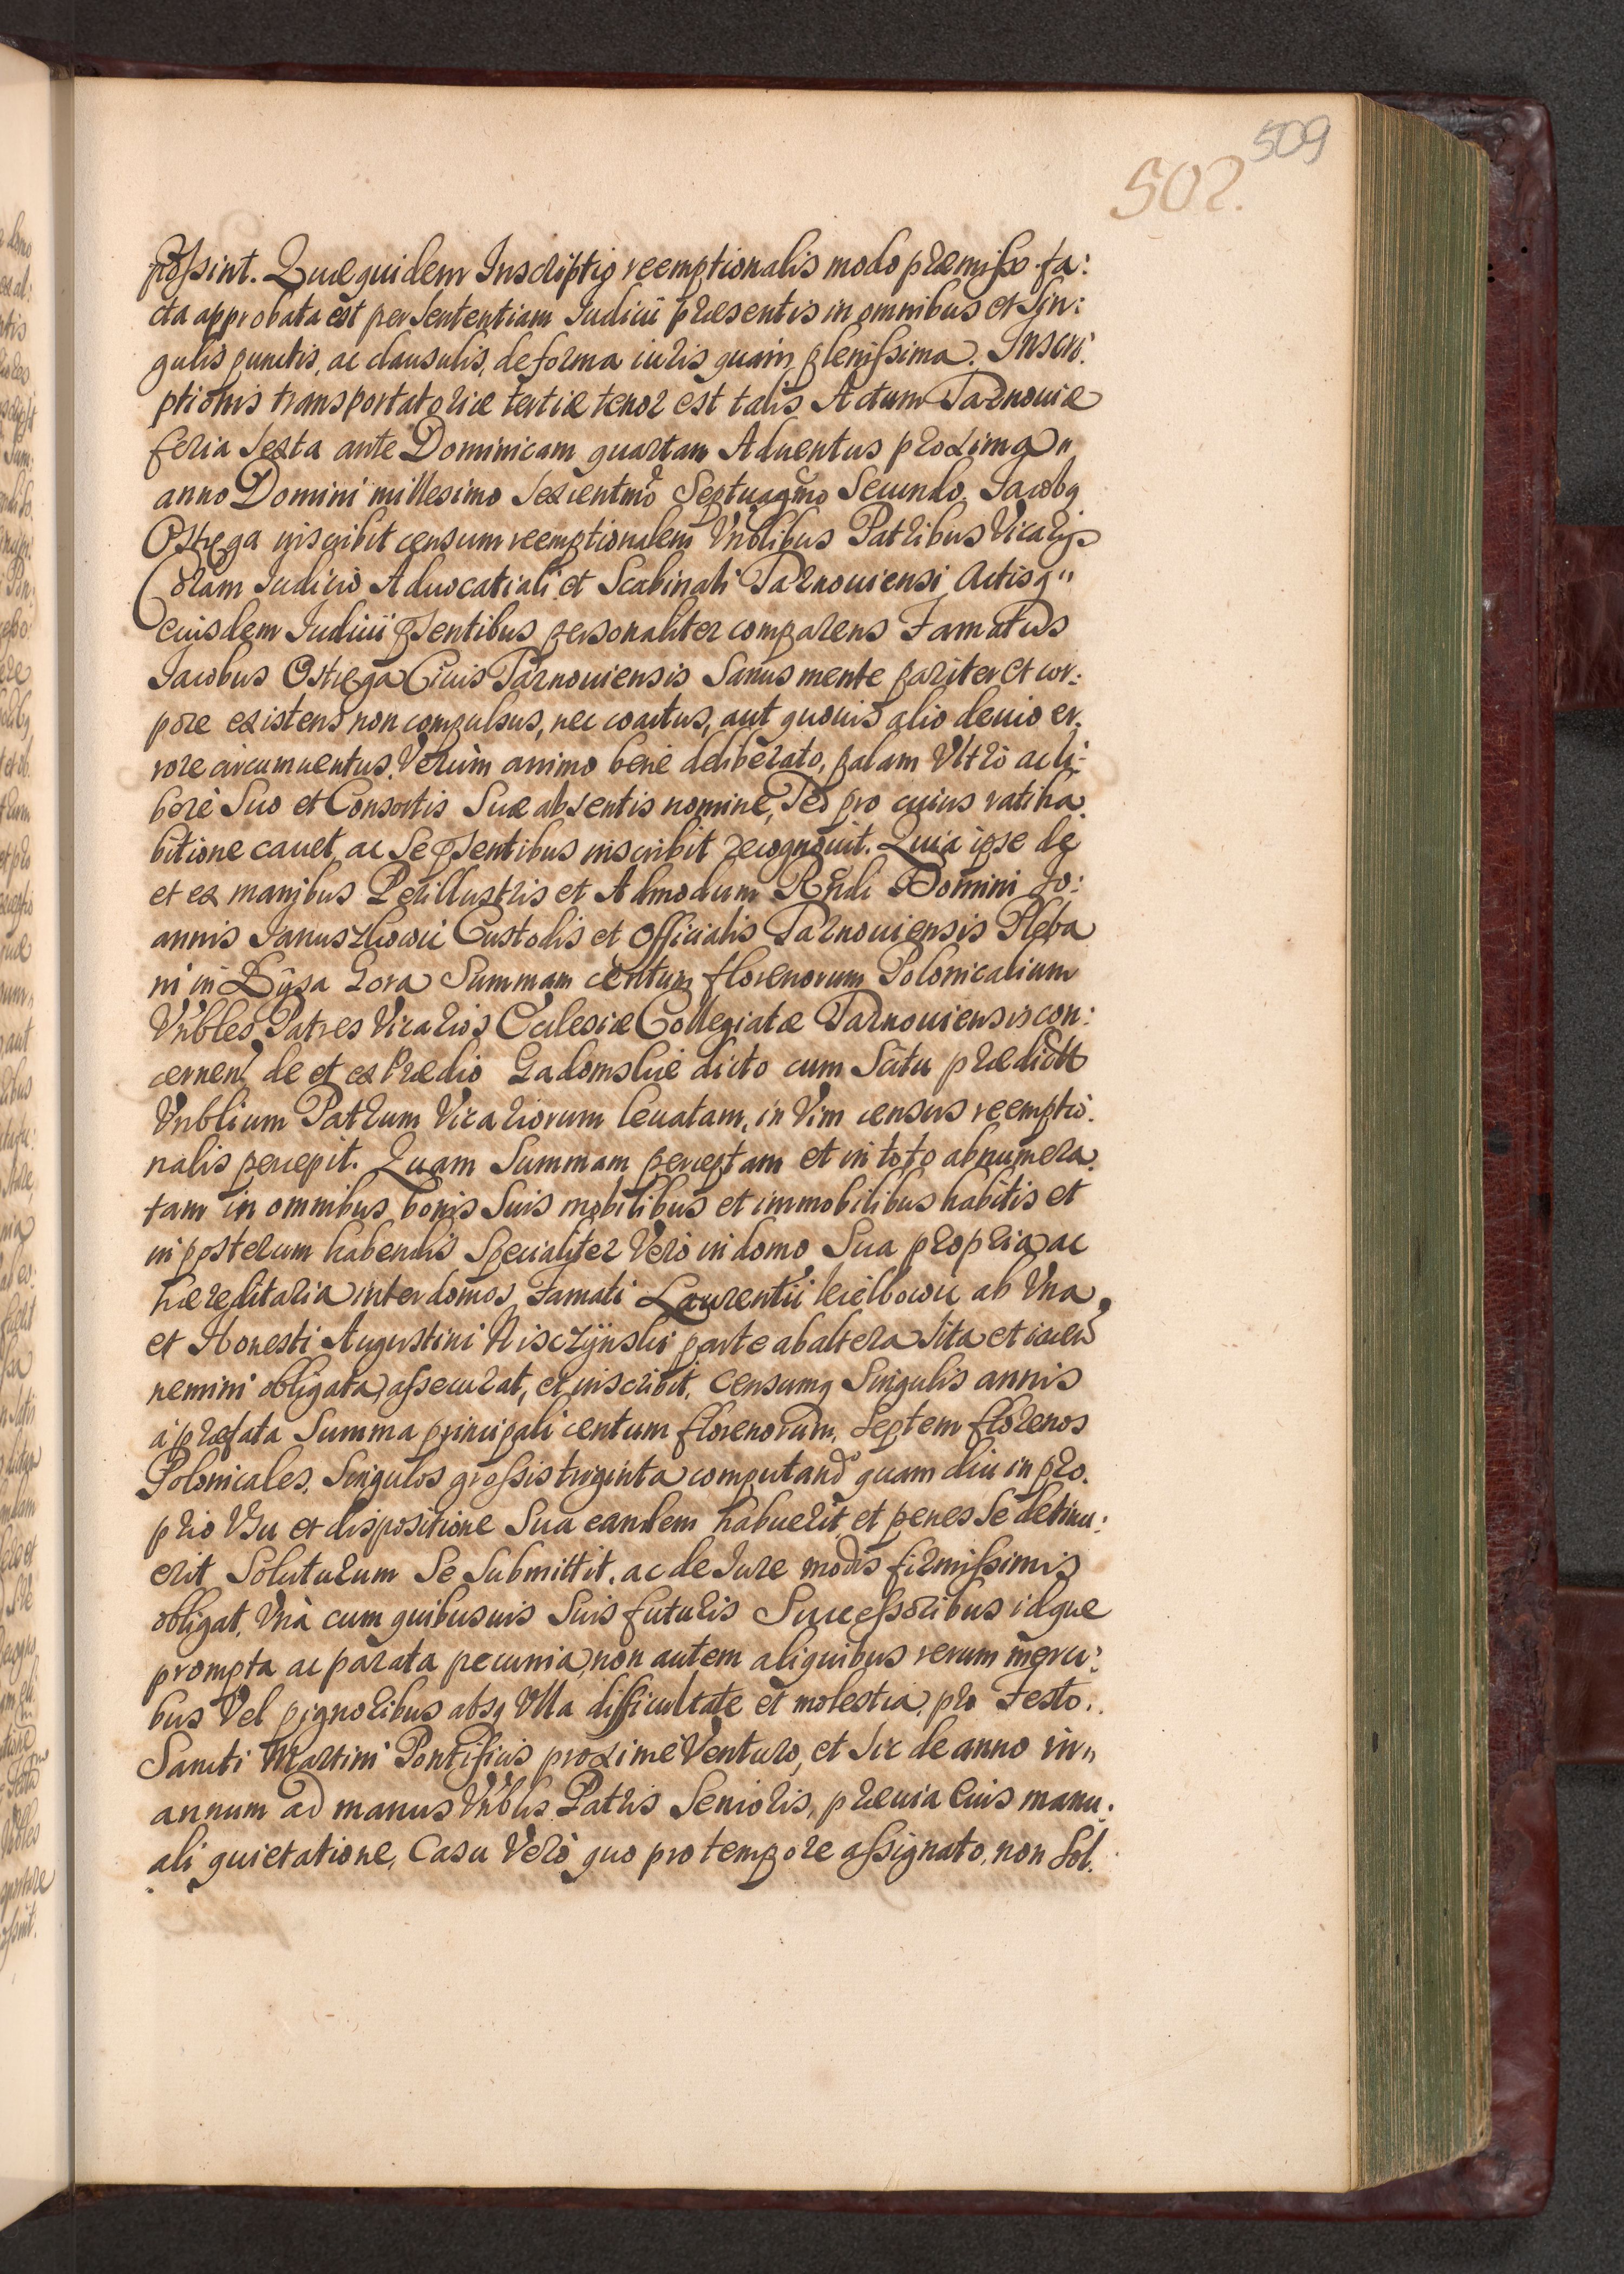 509
502.
possint. Quæ quidem Inscriptio reemptionalis modo præmisso fa:
cta approbata est per Sententiam Iudicii præsentis in omnibus et Sin:
gulis punctis, ac clausulis, de forma iuris quam plenissima. Inscri:
ptionis transportatoriæ tertiæ tenor est talis Actum Tarnoviæ
feria Sexta ante Dominicam quartam Aduentus proxima
anno Domini millesimo Sexcentmo Septuagmo Secundo. Jacobq
Ostręga inscribit censum reemptionalem Vnblibus Patribus Vicarijs
Coram Iudicio Aduocatiali et Scabinali Tarnouiensi Actisq"
eiusdem Iudicii pſentibus personaliter comparens Famatus
Iacobus Ostręga Ciuis Tarnouiensis Sanus mente pariter et cor:
pore existens non compulsus, nec coactus, aut quouis alio deuio er:
rore circumuentus. Verùm animo benè deliberato, palam Vltrò ac li:
berè Suo et Consortis Suæ absentis nomine, Seq pro cuius ratiha:
bitione cauet ac Se pſentibus inscribit recognouit. Quia ipse de
et ex manibus Perillustris et Admodum Rndi Domini Jo:
annis Januszkowic Custodis et Officialis Tarnouiensis Pleba
ni in Łysa Gora Summam centum florenorum Polonicalium
Vnbles Patres Vicarios Ecclesiæ Collegiatæ Tarnouiensis con:
cernen de et ex Prædio Gadomskie dicto cum Scitu prædictt
Vnblium Patrum Vicariorum leuatam, in Vim census reemptio:
nalis percepit. Quam Summam perceptam et in toto abnumera:
tam in omnibus bonis Suis mobilibus et immobilibus habitis et
in posterum habendis Specialiter Verò in domo Sua propria ac
hæreditaria inter domos Famati Laurentii Kiełbowic ab Vna,
et Honesti Augustini Nisczyński parte ab altera Sita et iacen
nemini obligata assecurat, et inscribit. Censumq Singulis annis
à præfata Summa principali centum florenorum, Septem florenos
Polonicales. Singulos grossis triginta computand quam diu in pro:
prio Vsu et dispositione Sua eandem habuerit et penes Se detinu:
erit Soluturum Se Submittit. ac de Iure modis firmissimis
obligat, Vnà cum quibusuis Suis futuris Successoribus idque
prompta ac parata pecunia, non autem aliquibus rerum merci:
bus Vel pignoribus absq Vlla difficultate et molestia, pro Festo
Sancti Martini Pontificis proximè Venturo, et Sic de anno in"
annum ad manus Vnblis Patris Senioris, præuia Eius manu:
ali quietatione, Casu Verò quo pro tempore assignato, non Sol.